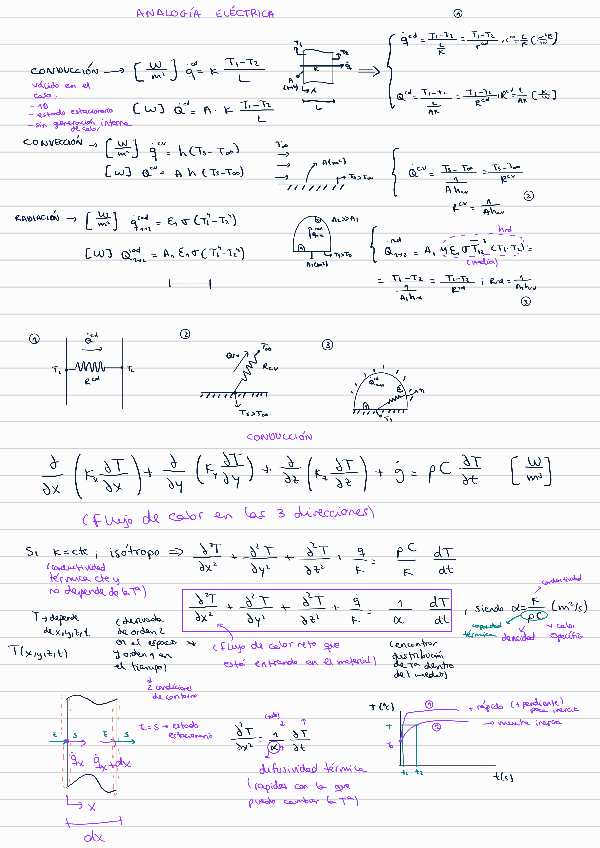 ANALOGÍA ELÉCTRICA
①
CONDUCCIÓN → [W/m²] q̇ᶜᵈ = K (T₁-T₂)/L
válido en el
caso:
- 1D
- estado estacionario
- sin generación interna
de calor
[W] Q̇ᶜᵈ = A · K (T₁-T₂)/L
T₁
T₂
K
Q̇
A
(m²)
L
q̇ᶜᵈ = (T₁-T₂)/(L/K) = (T₁-T₂)/rᶜᵈ
Q̇ᶜᵈ = (T₁-T₂)/(L/AK) = (T₁-T₂)/Rᶜᵈ
CONVECCIÓN → [W/m²] q̇ᶜᵛ = h(Ts-T∞)
[W] Q̇ᶜᵛ = A h (Ts-T∞)
T∞
A(m²)
Ts>T∞
Q̇ᶜᵛ = (Ts-T∞)/(1/Ahcv) = (Ts-T∞)/Rᶜᵛ
Rᶜᵛ = 1/Ahcv
②
RADIACIÓN → [W/m²] q̇ʳᵃᵈ₁→₂ = ε₁σ(T₁⁴-T₂⁴)
[W] Q̇ʳᵃᵈ₁→₂ = A₁ ε₁σ(T₁⁴-T₂⁴)
A₂>>A₁
A₁(m²)
hrd
Q̇ʳᵈ₁→₂ = A₁ 4ε₁σT̄₁₂³ (T₁-T₂) =
(media)
= (T₁-T₂)/(1/A₁hrd) = (T₁-T₂)/Rʳᵈ ; Rrd = 1/A₁hrd
③
① Q̇ᶜᵈ
T₁
T₂
Rᶜᵈ
② Q̇cv
T∞
Rcv
Ts>T∞
③
T₁
CONDUCCIÓN
∂/∂x (Kx ∂T/∂x) + ∂/∂y (Ky ∂T/∂y) + ∂/∂z (Kz ∂T/∂z) + ġ = ρC ∂T/∂t [W/m³]
(flujo de calor en las 3 direcciones)
Si K=cte, isótropo ⇒ ∂²T/∂x² + ∂²T/∂y² + ∂²T/∂z² + g/K = ρC/K dT/dt
(conductividad
térmica cte y
no depende de la Tª)
∂²T/∂x² + ∂²T/∂y² + ∂²T/∂z² + g/K = 1/α dT/dt , siendo α = K/ρC (m²/s)
conductividad
capacidad
térmica
densidad
calor
específico
T → depende
de x,y,z,t
T(x,y,z,t)
(derivada
de orden 2
en el espacio
y orden 1 en
el tiempo)
2 condiciones
de contorno
(flujo de calor neto que
está entrando en el material)
(encontrar
distribución
de Tª dentro
del medio)
E
S
E
S
q̇x
q̇x+dx
x
dx
E=S → estado
estacionario
∂²T/∂x² = 1/α ∂T/∂t
difusividad térmica
(rapidez con la que
puede cambiar la Tª)
T(ºC)
①
+ rápido (+pendiente)
poca inercia
②
→ mucha inercia
T
T₀
t₁
t₂
t(s)